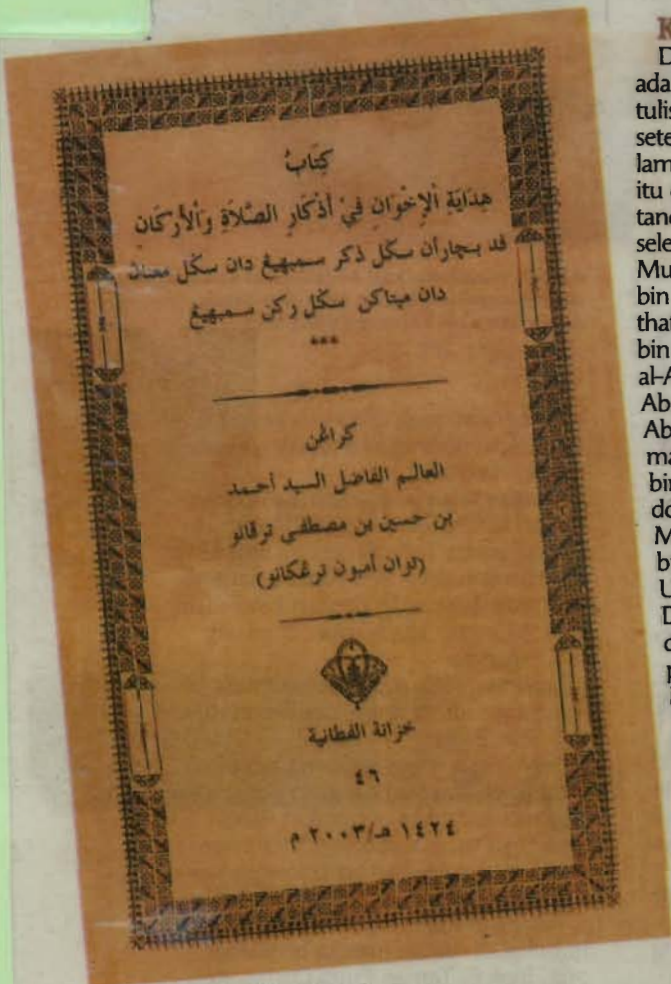 كِتَابُ
هِدَايَةِ الْإِخْوَانِ فِيْ أَذْكَارِ الصَّلَاةِ وَالْأَرْكَانِ
قد بچاران سکل ذکر سمبهيڠ دان سکل معنان
دان مپتاکن سکل رکن سمبهيڠ
***
کراڠن
العالم الفاضل السيد أحمد
بن حسين بن مصطفى ترقانو
(توان أمبون ترڠکانو)
خزانة الفطانية
٤٦
١٤٢٤ هـ/٢٠٠٣ م
K
D
ada
tulis
sete
lam
itu
tand
sele
Mu
bin
that
bin
al-A
Ab
Ab
ma
bin
do
M
b
U
D